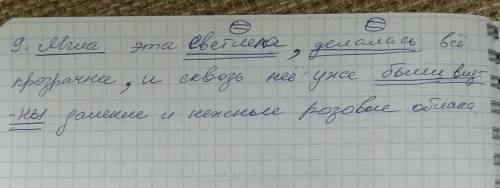 9. Мгла эта светлела, делалась всё
прозрачнее, и сквозь неё уже были вид-
-ны далекие и нежные розовые облака.